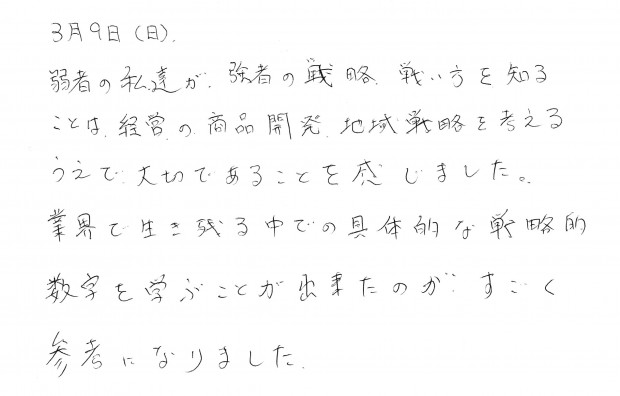 3月9日(日).
弱者の私達が、強者の戦略、戦い方を知る
ことは、経営の商品開発、地域戦略を考える
うえで、大切であることを感じました。
業界で生き残る中での具体的な戦略的
数字を学ぶことが出来たのが、すごく
参考になりました.